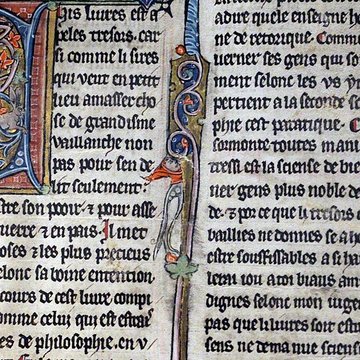 his liures est a
peles tresors. car
si comme li sires
qui veut en petit
lieu amasser cho
se de grandisme
vaillanche non
pas pour sen de
lit seulement.
stre son pooir. & pour asse
guerre & en pais. Il met
oses & les plus precieus
selonc sa boine entention.
cours de cest liure compi
omme celui qui est estrais
es de philosophie. en v
adire quele enseigne
ne de retorique. Comme
uerner ses gens qui so
ment selonc les vs
pertient a la seconde
phie cest pratique.
sormonte toutes mani
tressi est la sciense de
nier gens plus noble d
de. & por ce que li tresors
baillies ne donnes se a h
estre souffissables a si ha
lerai iou a toi biaus ami
dignes selonc mon iuge
pas que li liures soit est
sens ne de ma nue scien